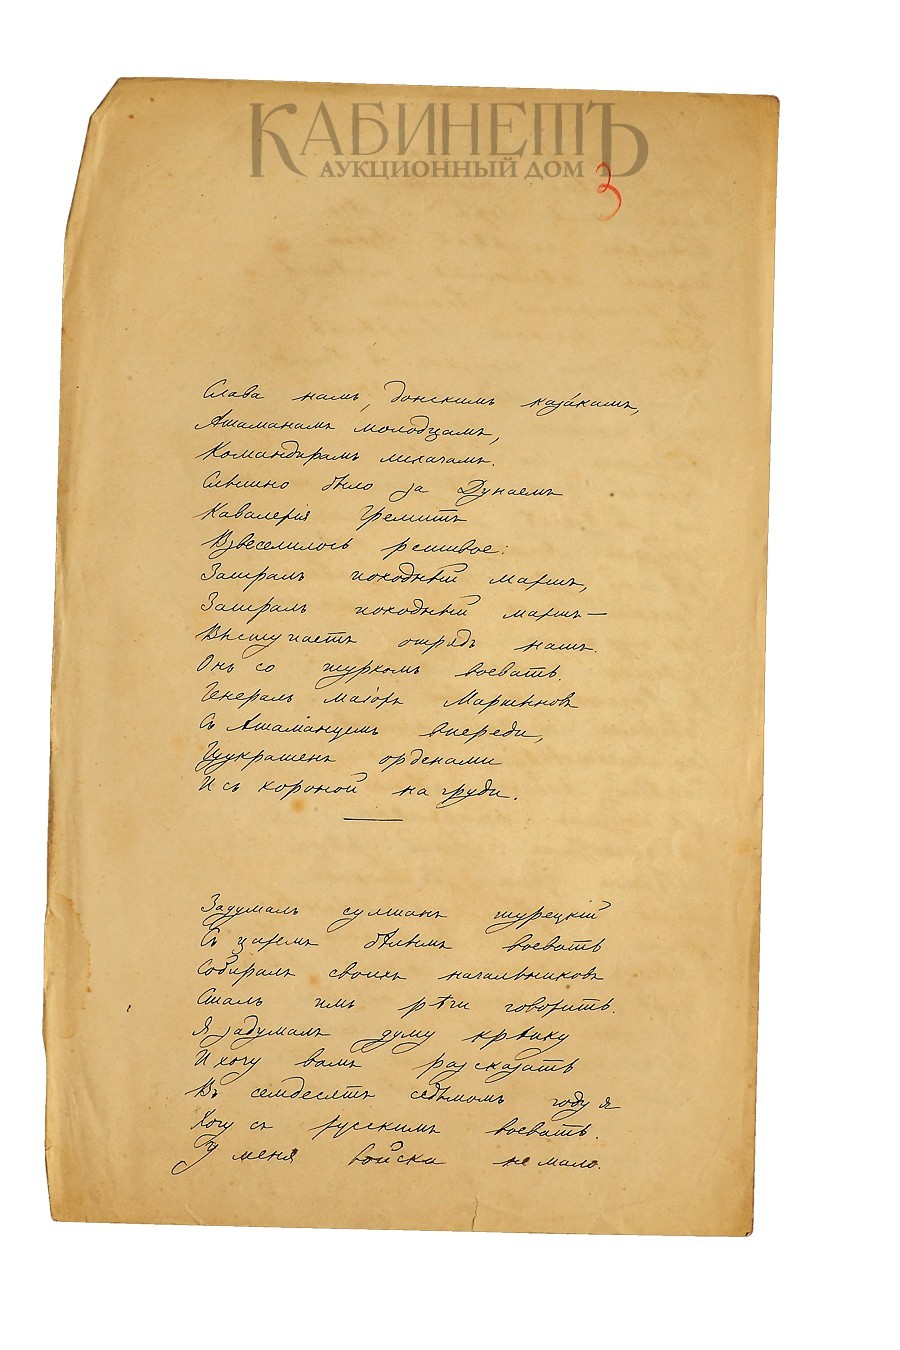 КАБИНЕТЪ
АУКЦИОННЫЙ ДОМ
3
Слава намъ, донскимъ каза́камъ,
Атаманамъ молодцамъ,
Командирамъ лихачамъ.
Слышно было за Дунаемъ
Кавалерія гремитъ
Взвеселилось ретивое:
Заигралъ походный маршъ,
Заигралъ походный маршъ —
Выступаетъ отрядъ нашъ.
Онъ со туркомъ воевать.
Генералъ маіоръ Мартыновъ
Съ Атаманцемъ впереди,
Изукрашенъ орденами
И съ короной на груди.
Задумалъ султанъ турецкій
Съ царемъ бѣлымъ воевать
Собиралъ своихъ начальниковъ
Сталъ имъ рѣчи говорить.
Я задумалъ думу крѣпку
И хочу вамъ разсказать
Въ семдесятъ седьмомъ году я
Хочу съ русскимъ воевать.
У меня войска не мало.